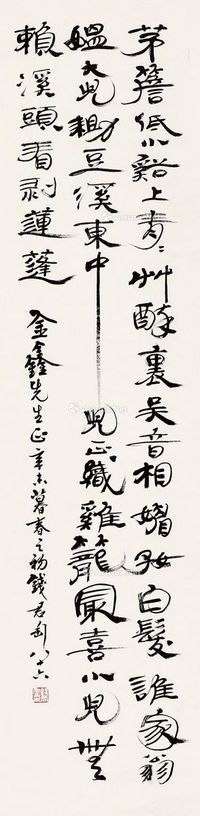 茅簷低小谿上青〻艸醉裏吴音相媚好白髮誰家翁
媼大兒鋤豆溪東中兒正織雞籠最喜小兒無
賴溪頭看剥蓮蓬
金鑫先生正辛未暮春之初錢君匋八十六